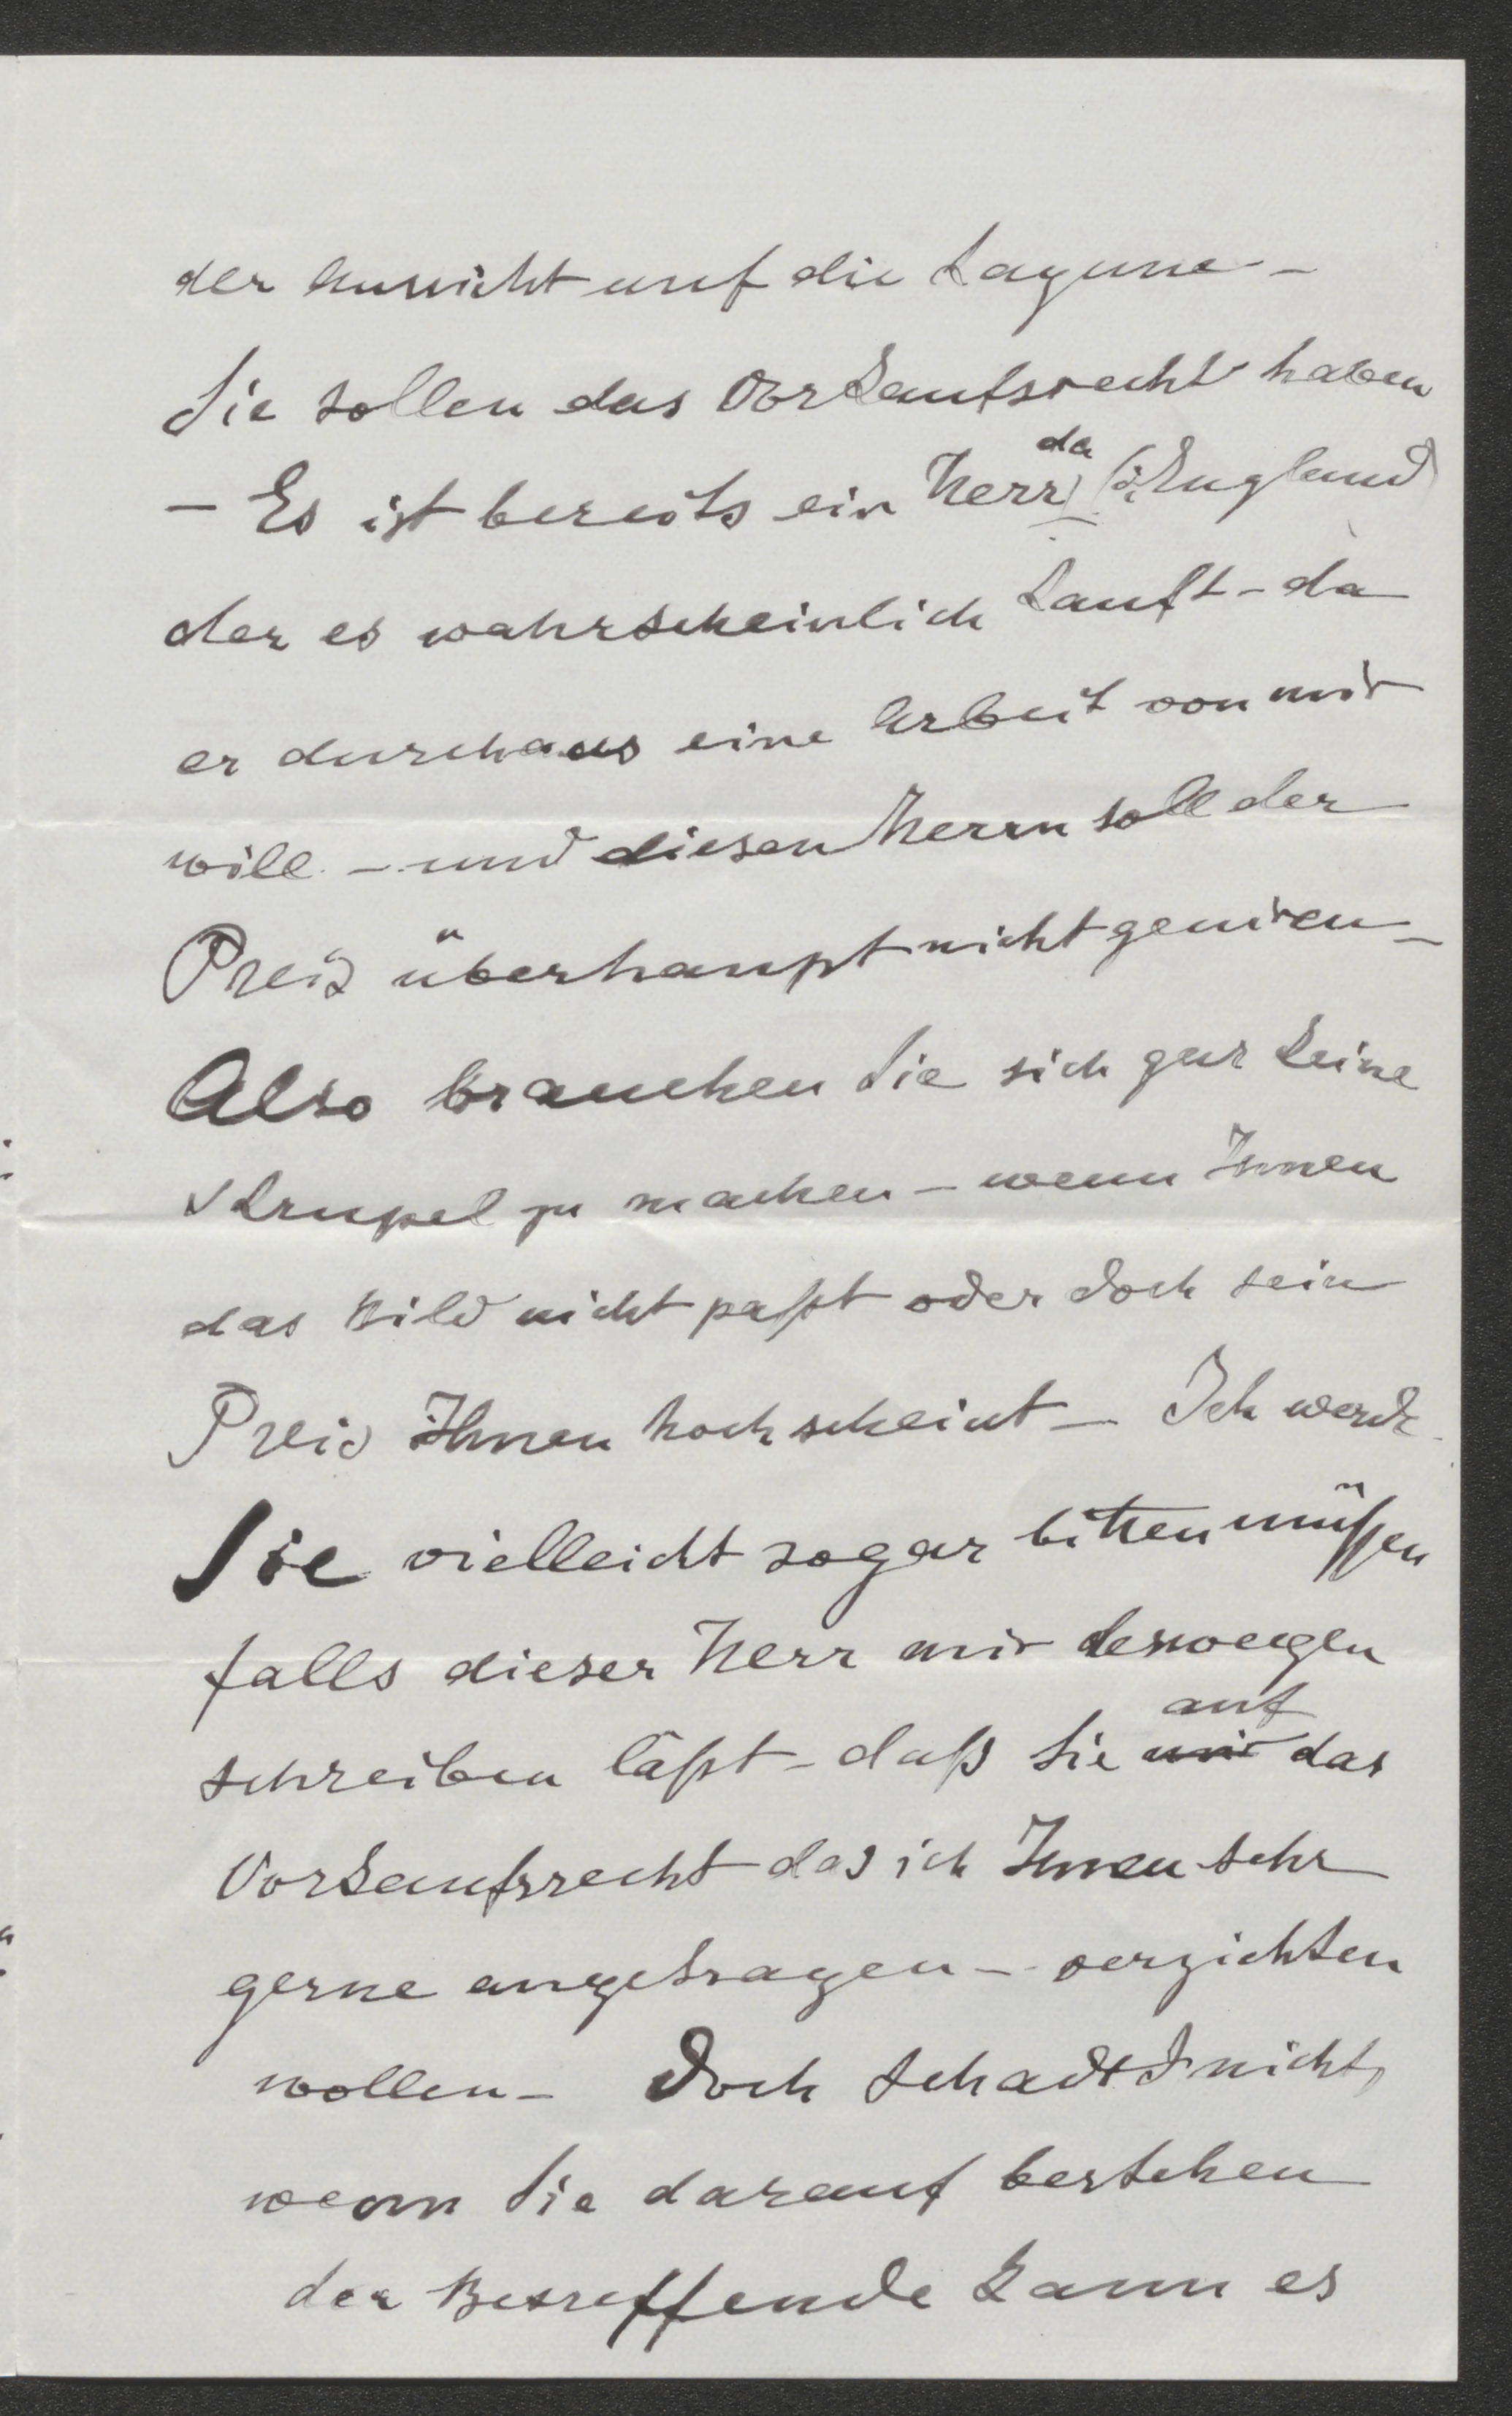 der Aussicht auf die Lagune –
Sie sollen das Vorkaufsrecht haben
– Es ist bereits ein Herr da (i. England)
der es wahrscheinlich kauft – da
er durchaus eine Arbeit von mir
will – und diesen Herrn soll der
Preis überhaupt nicht geniren –
Also brauchen Sie sich gar keine
Skrupel zu machen – wenn Ihnen
das Bild nicht paßt oder doch sein
Preis Ihnen hoch scheint – Ich werde
Sie vielleicht sogar bitten müßen
falls dieser Herr mir deswegen
schreiben läßt – daß Sie mir auf das
Vorkaufsrecht das ich Ihnen sehr
gerne angetragen – verzichten
wollen – Doch schadt's nicht,
wenn Sie darauf bestehen
der Betreffende kann es